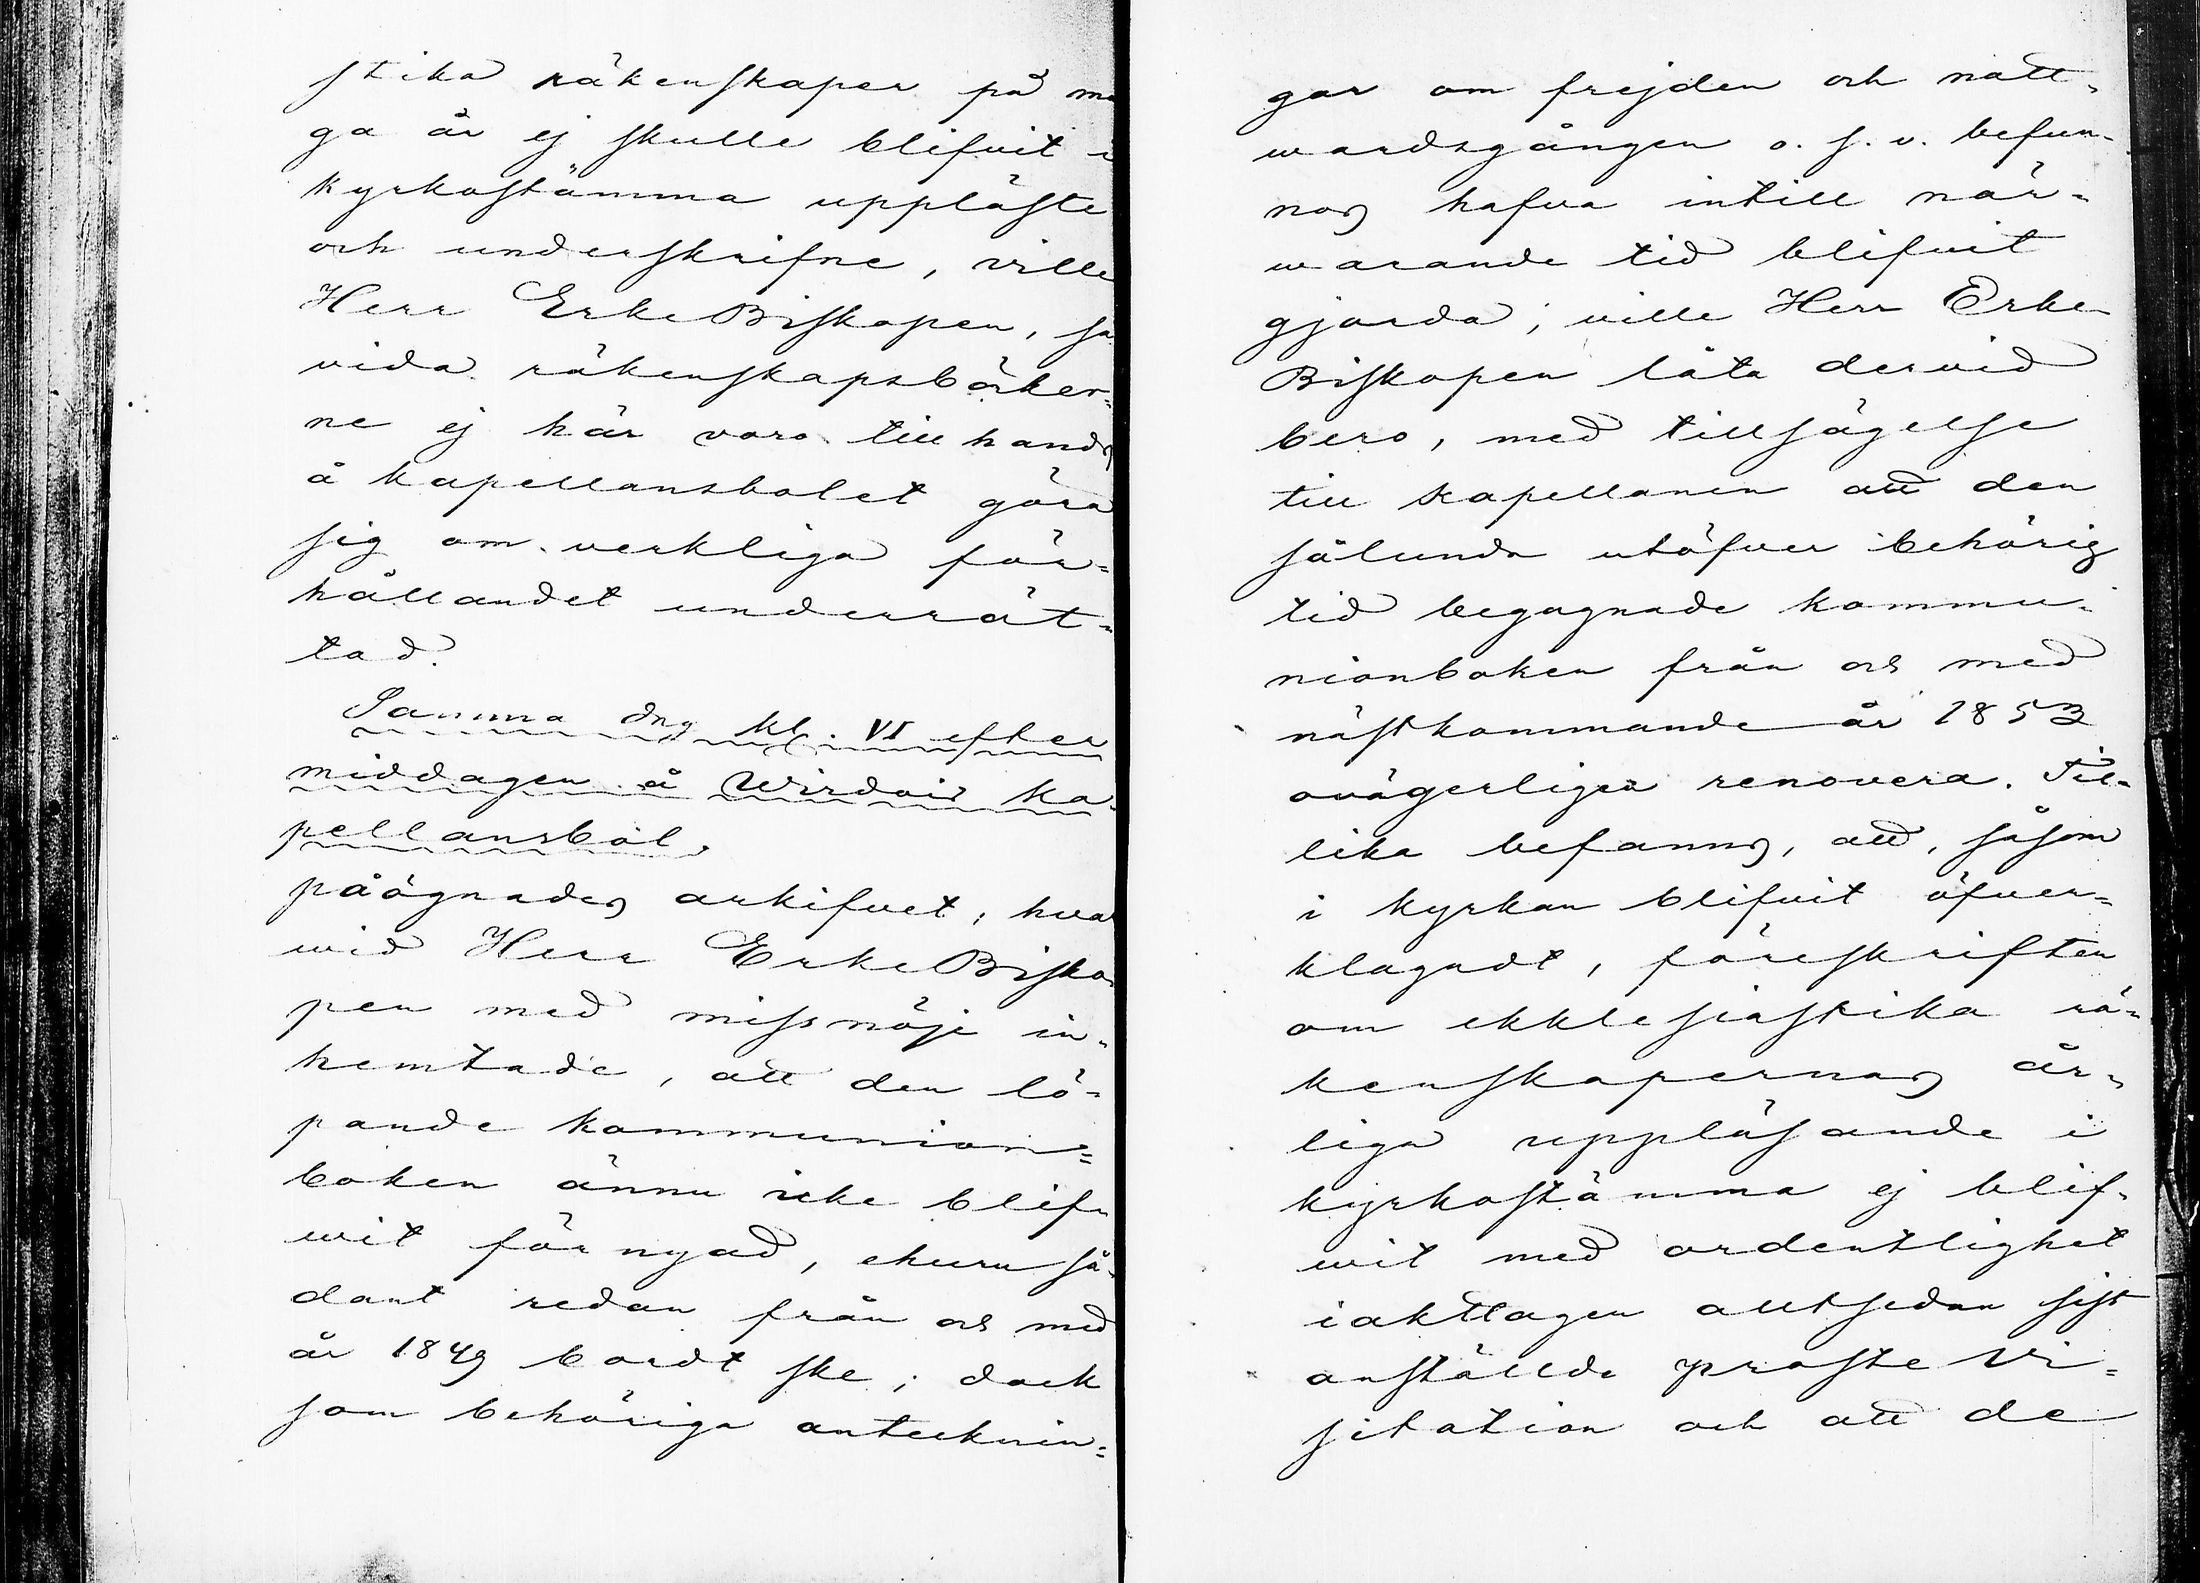 stika räkenskaper på må
ga år ej skulle blifvit i
kyrkostämma uppläste
och underskrifne, ville
Herr ErkeBiskopen, så
vida räkenskapsböker-
ne ej här voro till hands
å kapellansbolet göra
sig om verkliga för-
hållandet underrät-
tad.
Samma dag kl. VI efter
middagen å Wirdois ka-
pellansbol.
påögnades arkifvet; hvar
wid Herr ErkeBisko-
pen med missnöje in-
hemtade, att den lö-
pande kommunion-
boken ännu icke blif-
wit förnyad, ehuru så-
dant redan från och med
år 1849 bordt ske; dock
som behöriga antecknin-
gar om frejden och natt-
wardsgången o. s. v. befun-
nos hafva intill när-
warande tid blifvit
gjorda; ville Herr Erke
Biskopen låta dervid
bero, med tillsägelse
till kapellanen att den
sålunda utöfver behörig
tid begagnade kommu-
nionboken från och med
nästkommande år 1853
ovägerligen renovera. Til-
lika befanns, att, såsom
i kyrkan blifvit öfver-
klagadt, föreskriften
om ekklesiastika rä-
kenskapernas år-
liga uppläsande i
kyrkostämma ej blif-
wit med ordentlighet
iakttagen alltsedan sist
anställde proste Vi-
sitation och att de